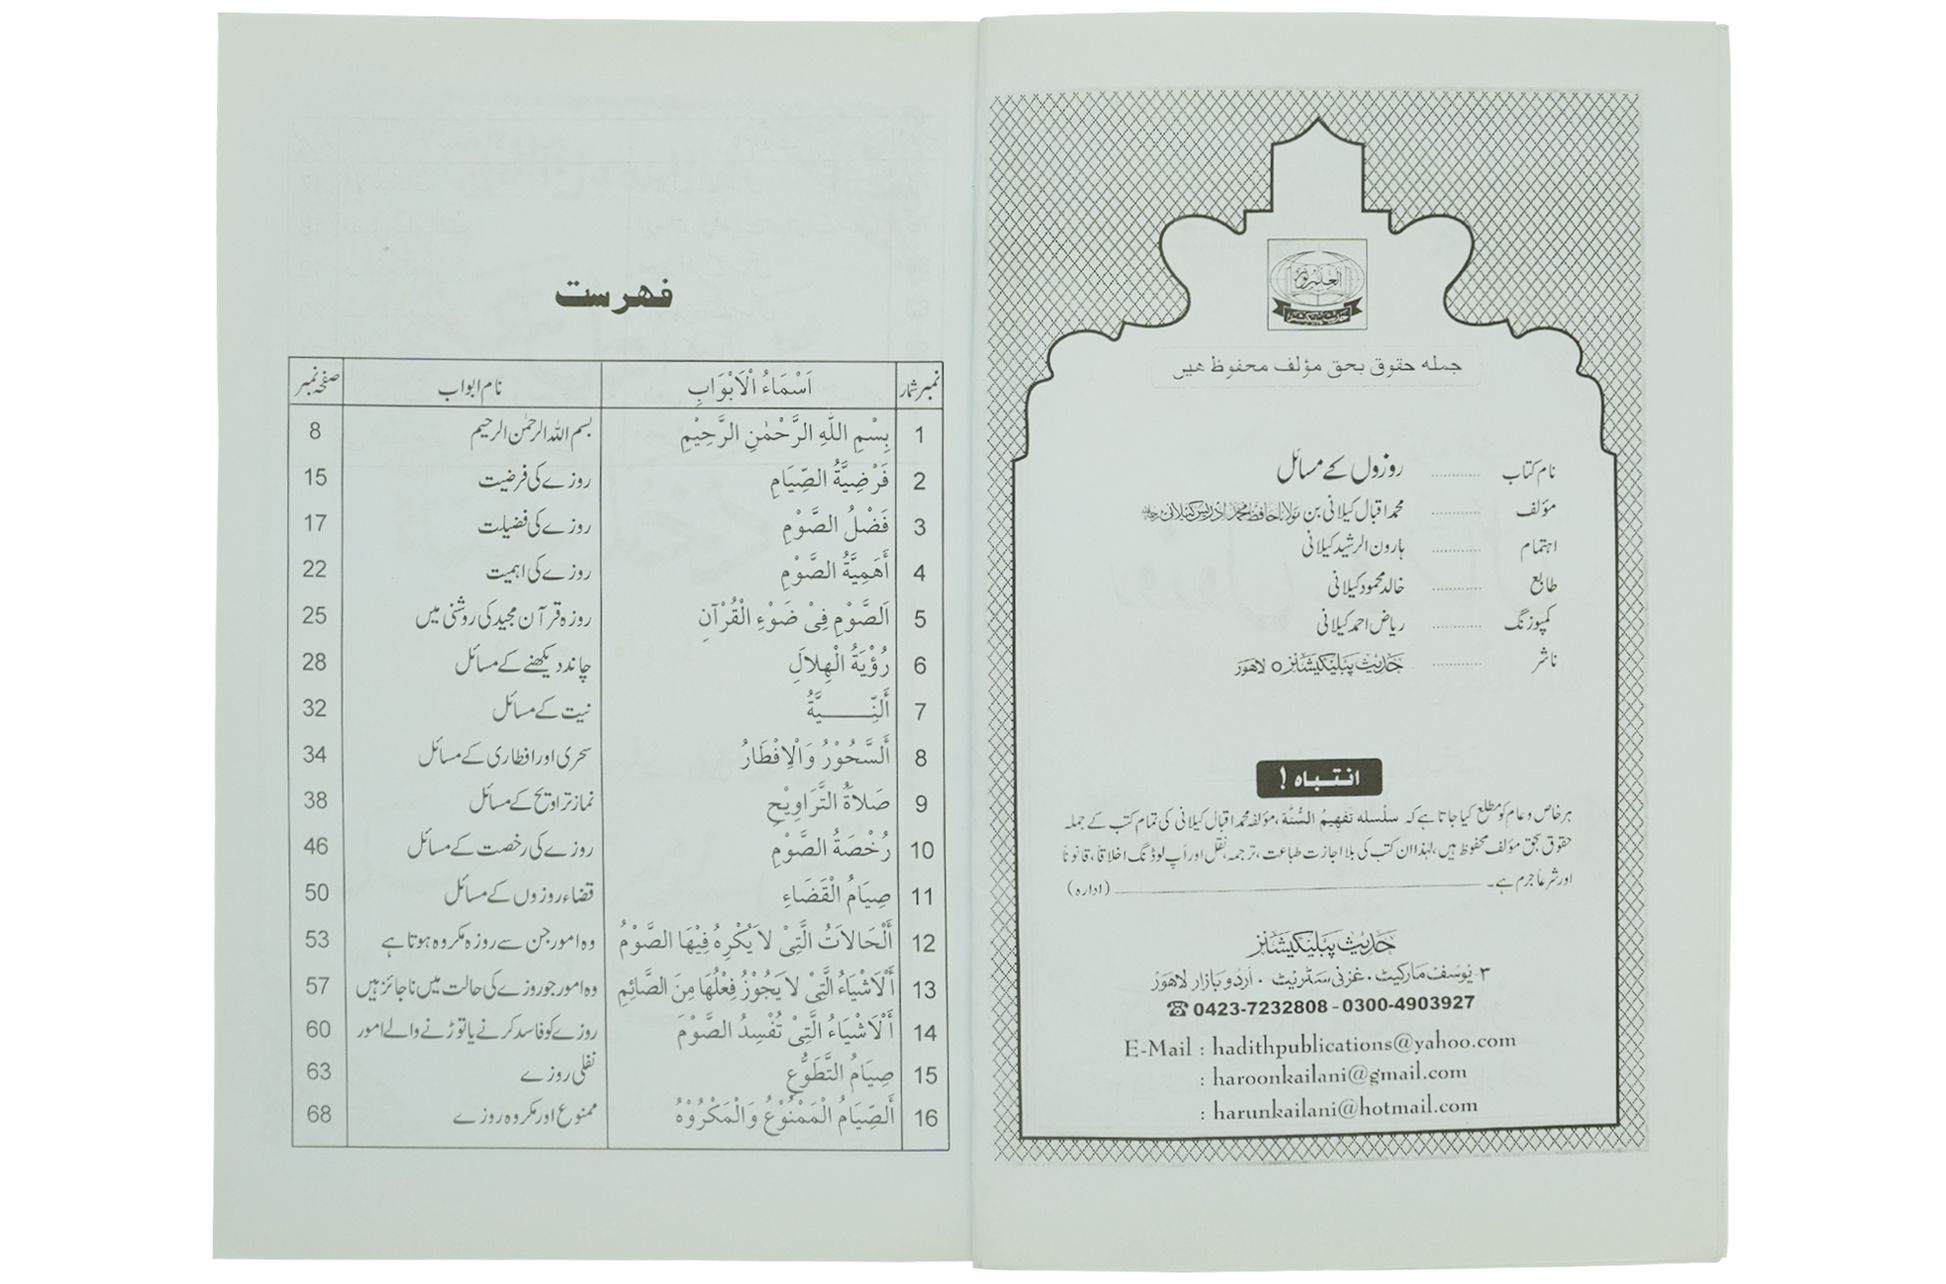 العلم نور
جمله حقوق بحق مؤلف محفوظ هیں
نام کتاب ............ روزوں کے مسائل
مؤلف ............ محمد اقبال کیلانی بن مولانا حافظ محمد ادریس کیلانی
اہتمام ............ ہارون الرشید کیلانی
طابع ............ خالد محمود کیلانی
کمپوزنگ ............ ریاض احمد کیلانی
ناشر ............ حدیث پبلیکیشنز ○ لاہور
انتباہ !
ہر خاص و عام کو مطلع کیا جاتا ہے کہ سلسله تفهيمُ السُّنَّة، مؤلفہ محمد اقبال کیلانی کی تمام کتب کے جملہ
حقوق بحق مؤلف محفوظ ہیں، لہٰذا ان کتب کی بلا اجازت طباعت، ترجمہ، نقل اور اَپ لوڈنگ اخلاقاً، قانوناً
اور شرعاً جرم ہے۔ (ادارہ)
حدیث پبلیکیشنز
۳ یوسف مارکیٹ۔ غزنی سٹریٹ۔ اردو بازار لاہور
☎ 0423-7232808 - 0300-4903927
E-Mail : hadithpublications@yahoo.com
: haroonkailani@gmail.com
: harunkailani@hotmail.com
فہرست
نمبر شمار اَسْمَاءُ الْاَبْوَابِ نام ابواب صفحہ نمبر
1 بِسْمِ اللّٰهِ الرَّحْمٰنِ الرَّحِيْمِ بسم اللہ الرحمٰن الرحیم 8
2 فَرْضِيَّةُ الصِّيَامِ روزے کی فرضیت 15
3 فَضْلُ الصَّوْمِ روزے کی فضیلت 17
4 أَهَمِيَّةُ الصَّوْمِ روزے کی اہمیت 22
5 اَلصَّوْمِ فِىْ ضَوْءِ الْقُرْآنِ روزہ قرآن مجید کی روشنی میں 25
6 رُؤْيَةُ الْهِلالَ چاند دیکھنے کے مسائل 28
7 أَلنِّـــيَّةُ نیت کے مسائل 32
8 أَلسَّحُوْرُ وَالْاِفْطَارُ سحری اور افطاری کے مسائل 34
9 صَلاَةُ التَّرَاوِيْحِ نماز تراویح کے مسائل 38
10 رُخْصَةُ الصَّوْمِ روزے کی رخصت کے مسائل 46
11 صِيَامُ الْقَضَاءِ قضاء روزوں کے مسائل 50
12 أَلْحَالاَتُ الَّتِىْ لاَ يُكْرِهُ فِيْهَا الصَّوْمُ وہ امور جن سے روزہ مکروہ ہوتا ہے 53
13 أَلْاَشْيَاءُ الَّتِىْ لاَ يَجُوْزُ فِعْلُهَا مِنَ الصَّائِمِ وہ امور جو روزے کی حالت میں ناجائز ہیں 57
14 أَلْاَشْيَاءُ الَّتِىْ تُفْسِدُ الصَّوْمَ روزے کو فاسد کرنے یا توڑنے والے امور 60
15 صِيَامُ التَّطَوُّعِ نفلی روزے 63
16 أَلصِّيَامُ الْمَمْنُوْعُ وَالْمَكْرُوْهُ ممنوع اور مکروہ روزے 68